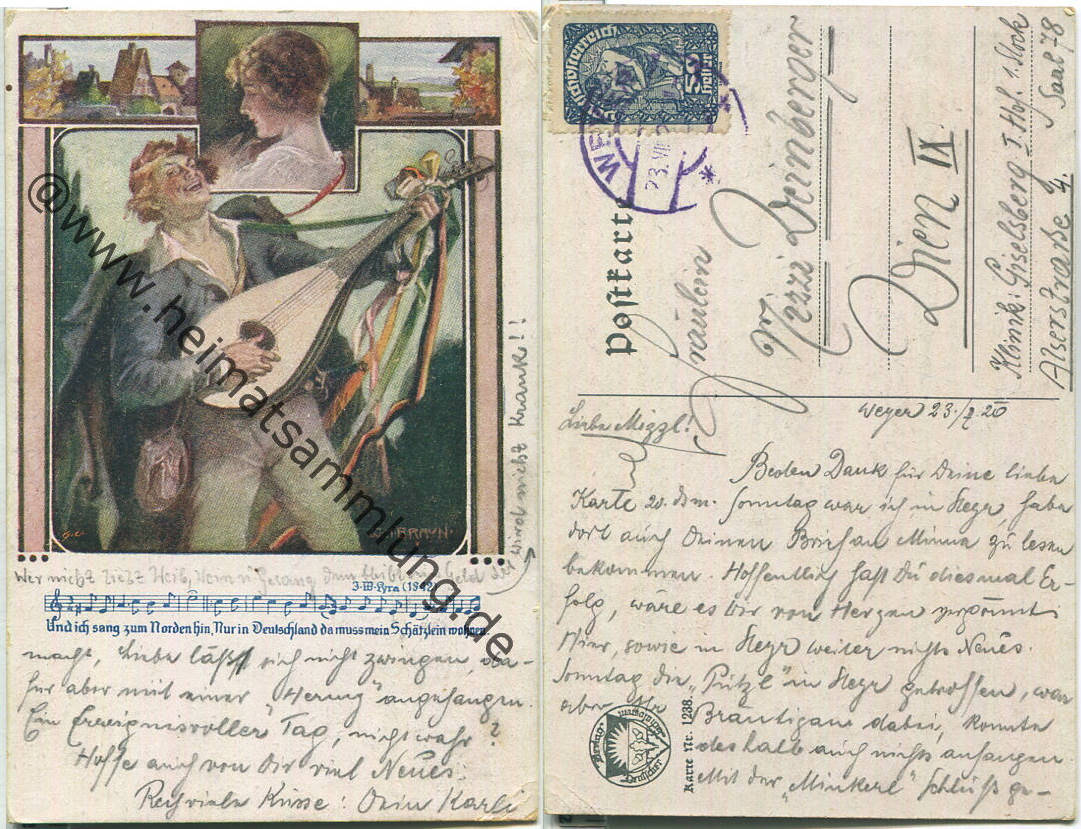 BRAUN.
Wer nicht liebt Weib, Wein u. Gesang dem bleibt
wird nicht krank!!
J. W. Lyra (1842)
Und ich sang zum Norden hin, Nur in Deutschland da muss mein Schätzlein wohnen.
macht, Liebe läßt sich nicht zwingen, da-
für aber mit einer angefangen.
Ein Ereignisvoller Tag, nicht wahr?
Hoffe auch von Dir viel Neues.
Recht viele Küsse: Dein Karli
@www.heimatsammlung.de
Postkarte
Fräulein
Mizzi Weinberger
Wien IX
Klinik: Giselsberg I. Hof. 1. Stock
Alserstraße 4. Saal 78
Weyer 23./7.20
Liebe Mizzl!
Besten Dank für Deine liebe
Karte 20. dsm. Sonntag war ich in Steyr, habe
dort auch Deinen Brief an Minna zu lesen
bekommen. Hoffentlich hast Du diesmal Er-
folg, wäre es Dir von Herzen vergönnt
Hier, sowie in Steyr weiter nichts Neues.
Sonntag die in Steyr getroffen, war
aber Bräutigam dabei, konnte
deshalb auch nichts anfangen
Mit der „Minkerl" Schluß ge-
Karte Nr. 1238.